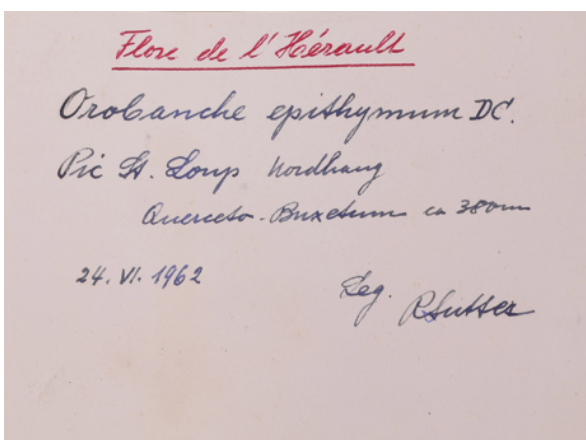 Flore de l'Hérault
Orobanche epithymum DC.
Pic St. Loup Nordhang
Querceto-Buxetum ca 380m
24. VI. 1962
Leg. R Sutter